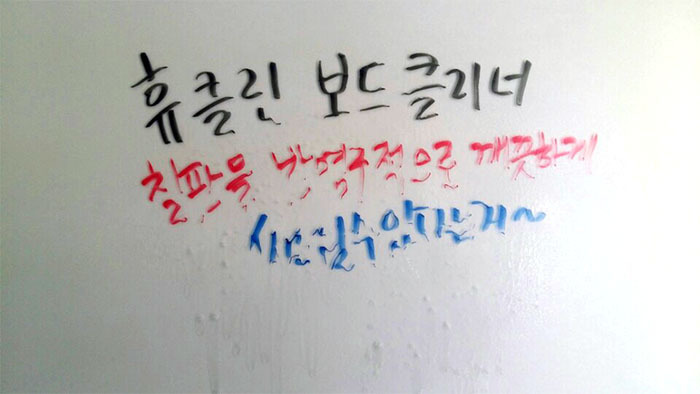 휴클린 보드클리너
칠판을 반영구적으로 깨끗하게
수 있는거~